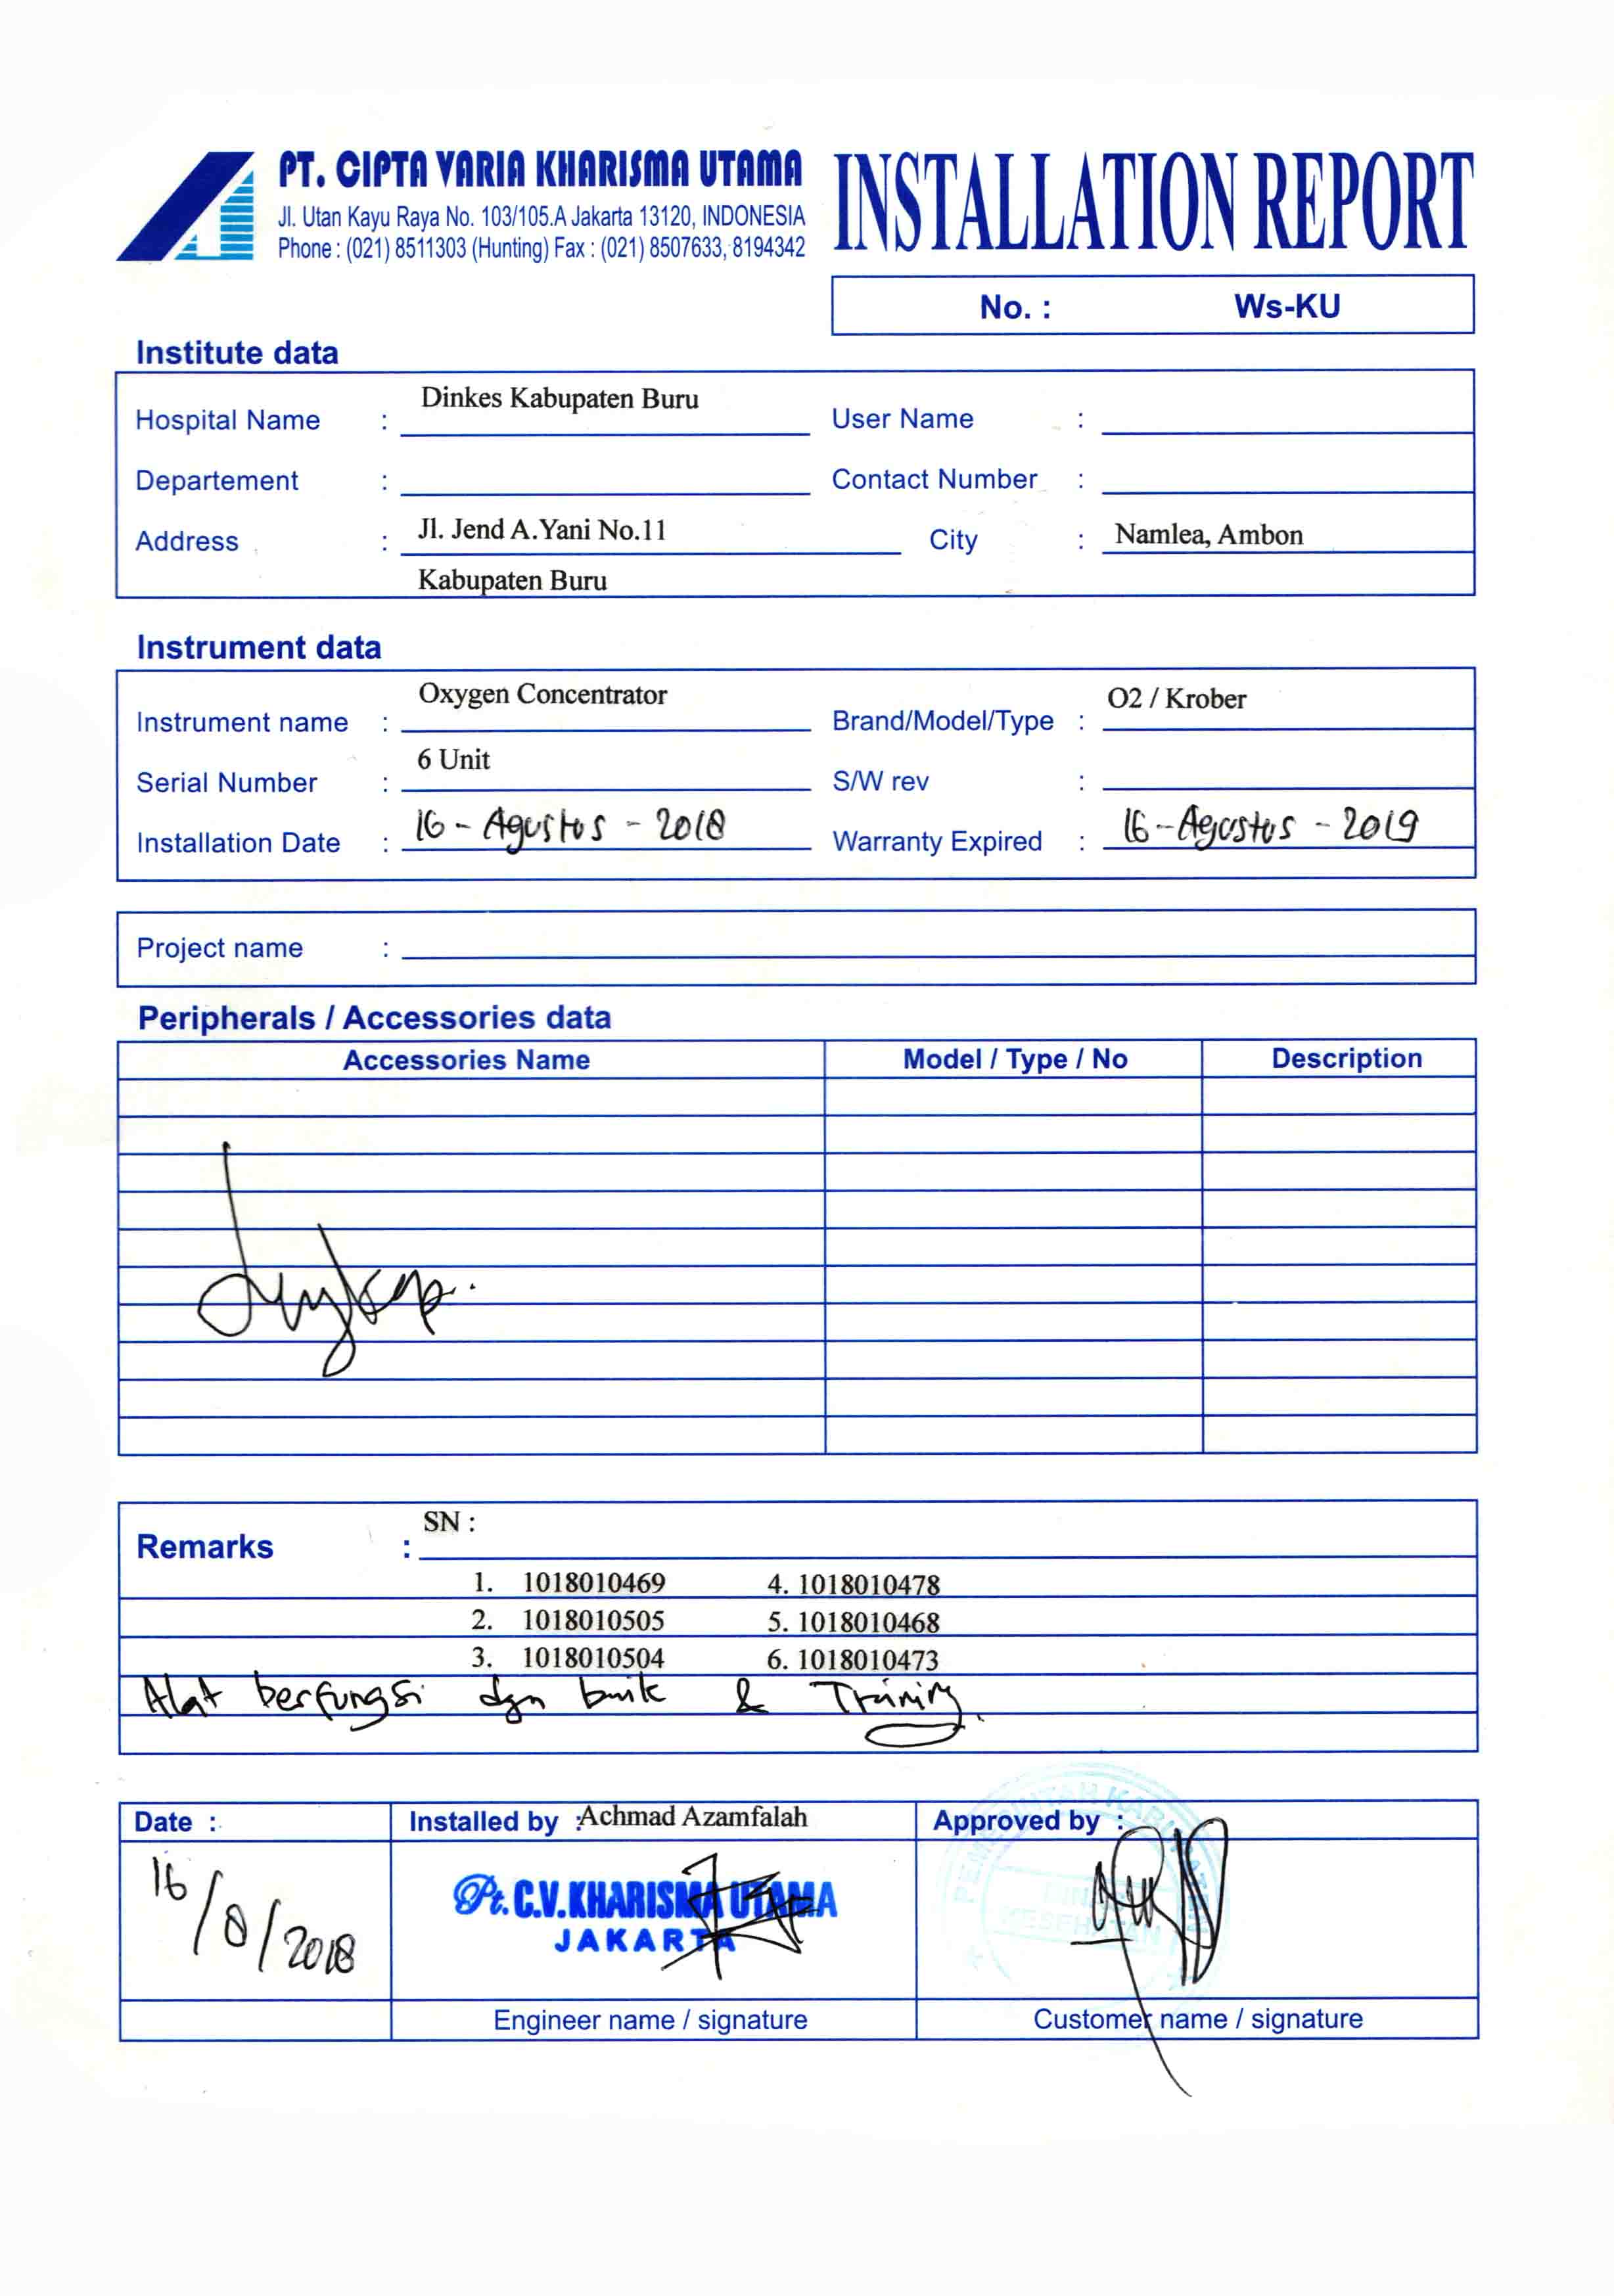 PT. CIPTA VARIA KHARISMA UTAMA
Jl. Utan Kayu Raya No. 103/105.A Jakarta 13120, INDONESIA
Phone : (021) 8511303 (Hunting) Fax : (021) 8507633, 8194342
INSTALLATION REPORT
No. : Ws-KU
Institute data
Hospital Name : Dinkes Kabupaten Buru User Name :
Departement : Contact Number :
Address : Jl. Jend A.Yani No.11 City : Namlea, Ambon
Kabupaten Buru
Instrument data
Instrument name : Oxygen Concentrator Brand/Model/Type : O2 / Krober
Serial Number : 6 Unit S/W rev :
Installation Date : 16 - Agustus - 2018 Warranty Expired : 16 - Agustus - 2019
Project name :
Peripherals / Accessories data
Accessories Name Model / Type / No Description
Lengkap.
Remarks : SN :
1. 1018010469 4. 1018010478
2. 1018010505 5. 1018010468
3. 1018010504 6. 1018010473
Alat berfungsi dgn baik & Training.
Date : Installed by : Achmad Azamfalah Approved by :
16/8/2018
Pt. C.V. KHARISMA UTAMA
JAKARTA
PEMERINTAH KABUPATEN
DINAS
KESEHATAN
Engineer name / signature Customer name / signature